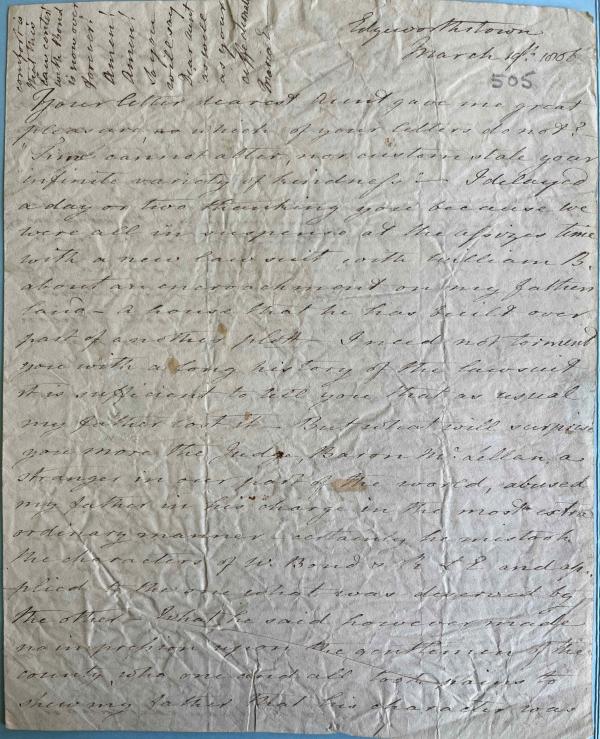 Edgeworthstown
March 19th. 1806
505
Your letter dearest Aunt gave me great
pleasure, as which of your letters do not?
"Time cannot alter, nor custom stale your
infinite variety of kindness" — I delayed
a day or two thanking you because we
were all in suspense at the assizes time
with a new law suit with William B.
about an encroachment on my father's
land — a house that he has built over
part of another plot. I need not torment
you with a long history of the lawsuit
it is sufficient to tell you that as usual
my father lost it. But what will surprise
you more the Judge, Baron Mc.Lellan, a
stranger in our part of the world, abused
my father in his charge in the most extra
ordinary manner certainly he mistook
the characters of W. Bond & R L E and ap-
plied to the one what was deserved by
the other — What he said however made
no impression upon the gentlemen of the
county, who one and all took pains to
shew my father that his character was
comfort is
that this
law contest
with Bond
is now over
forever!
Amen!
Amen!
So you
will say
Dear Aunt
as well
as your
affectionate
Maria E